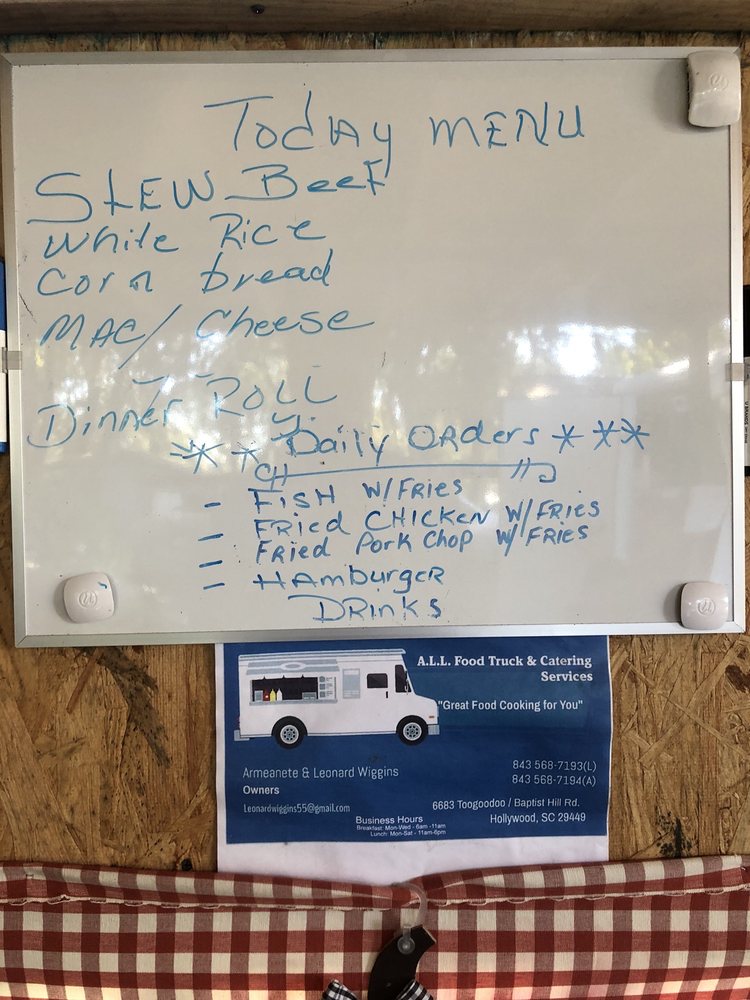 Today MENU
Stew Beef
White Rice
Corn bread
MAC/Cheese
Dinner Roll
** Daily Orders ***
- Fish w/Fries
- Fried CHICKEN w/Fries
- Fried Pork Chop w/ Fries
- Hamburger
Drinks
A.L.L. Food Truck & Catering
Services
"Great Food Cooking for You"
Armeanete & Leonard Wiggins
Owners
Leonardwiggins55@gmail.com
843 568-7193(L)
843 568-7194(A)
6683 Toogoodoo / Baptist Hill Rd.
Hollywood, SC 29449
Business Hours
Breakfast: Mon-Wed - 6am -11am
Lunch: Mon-Sat - 11am-6pm